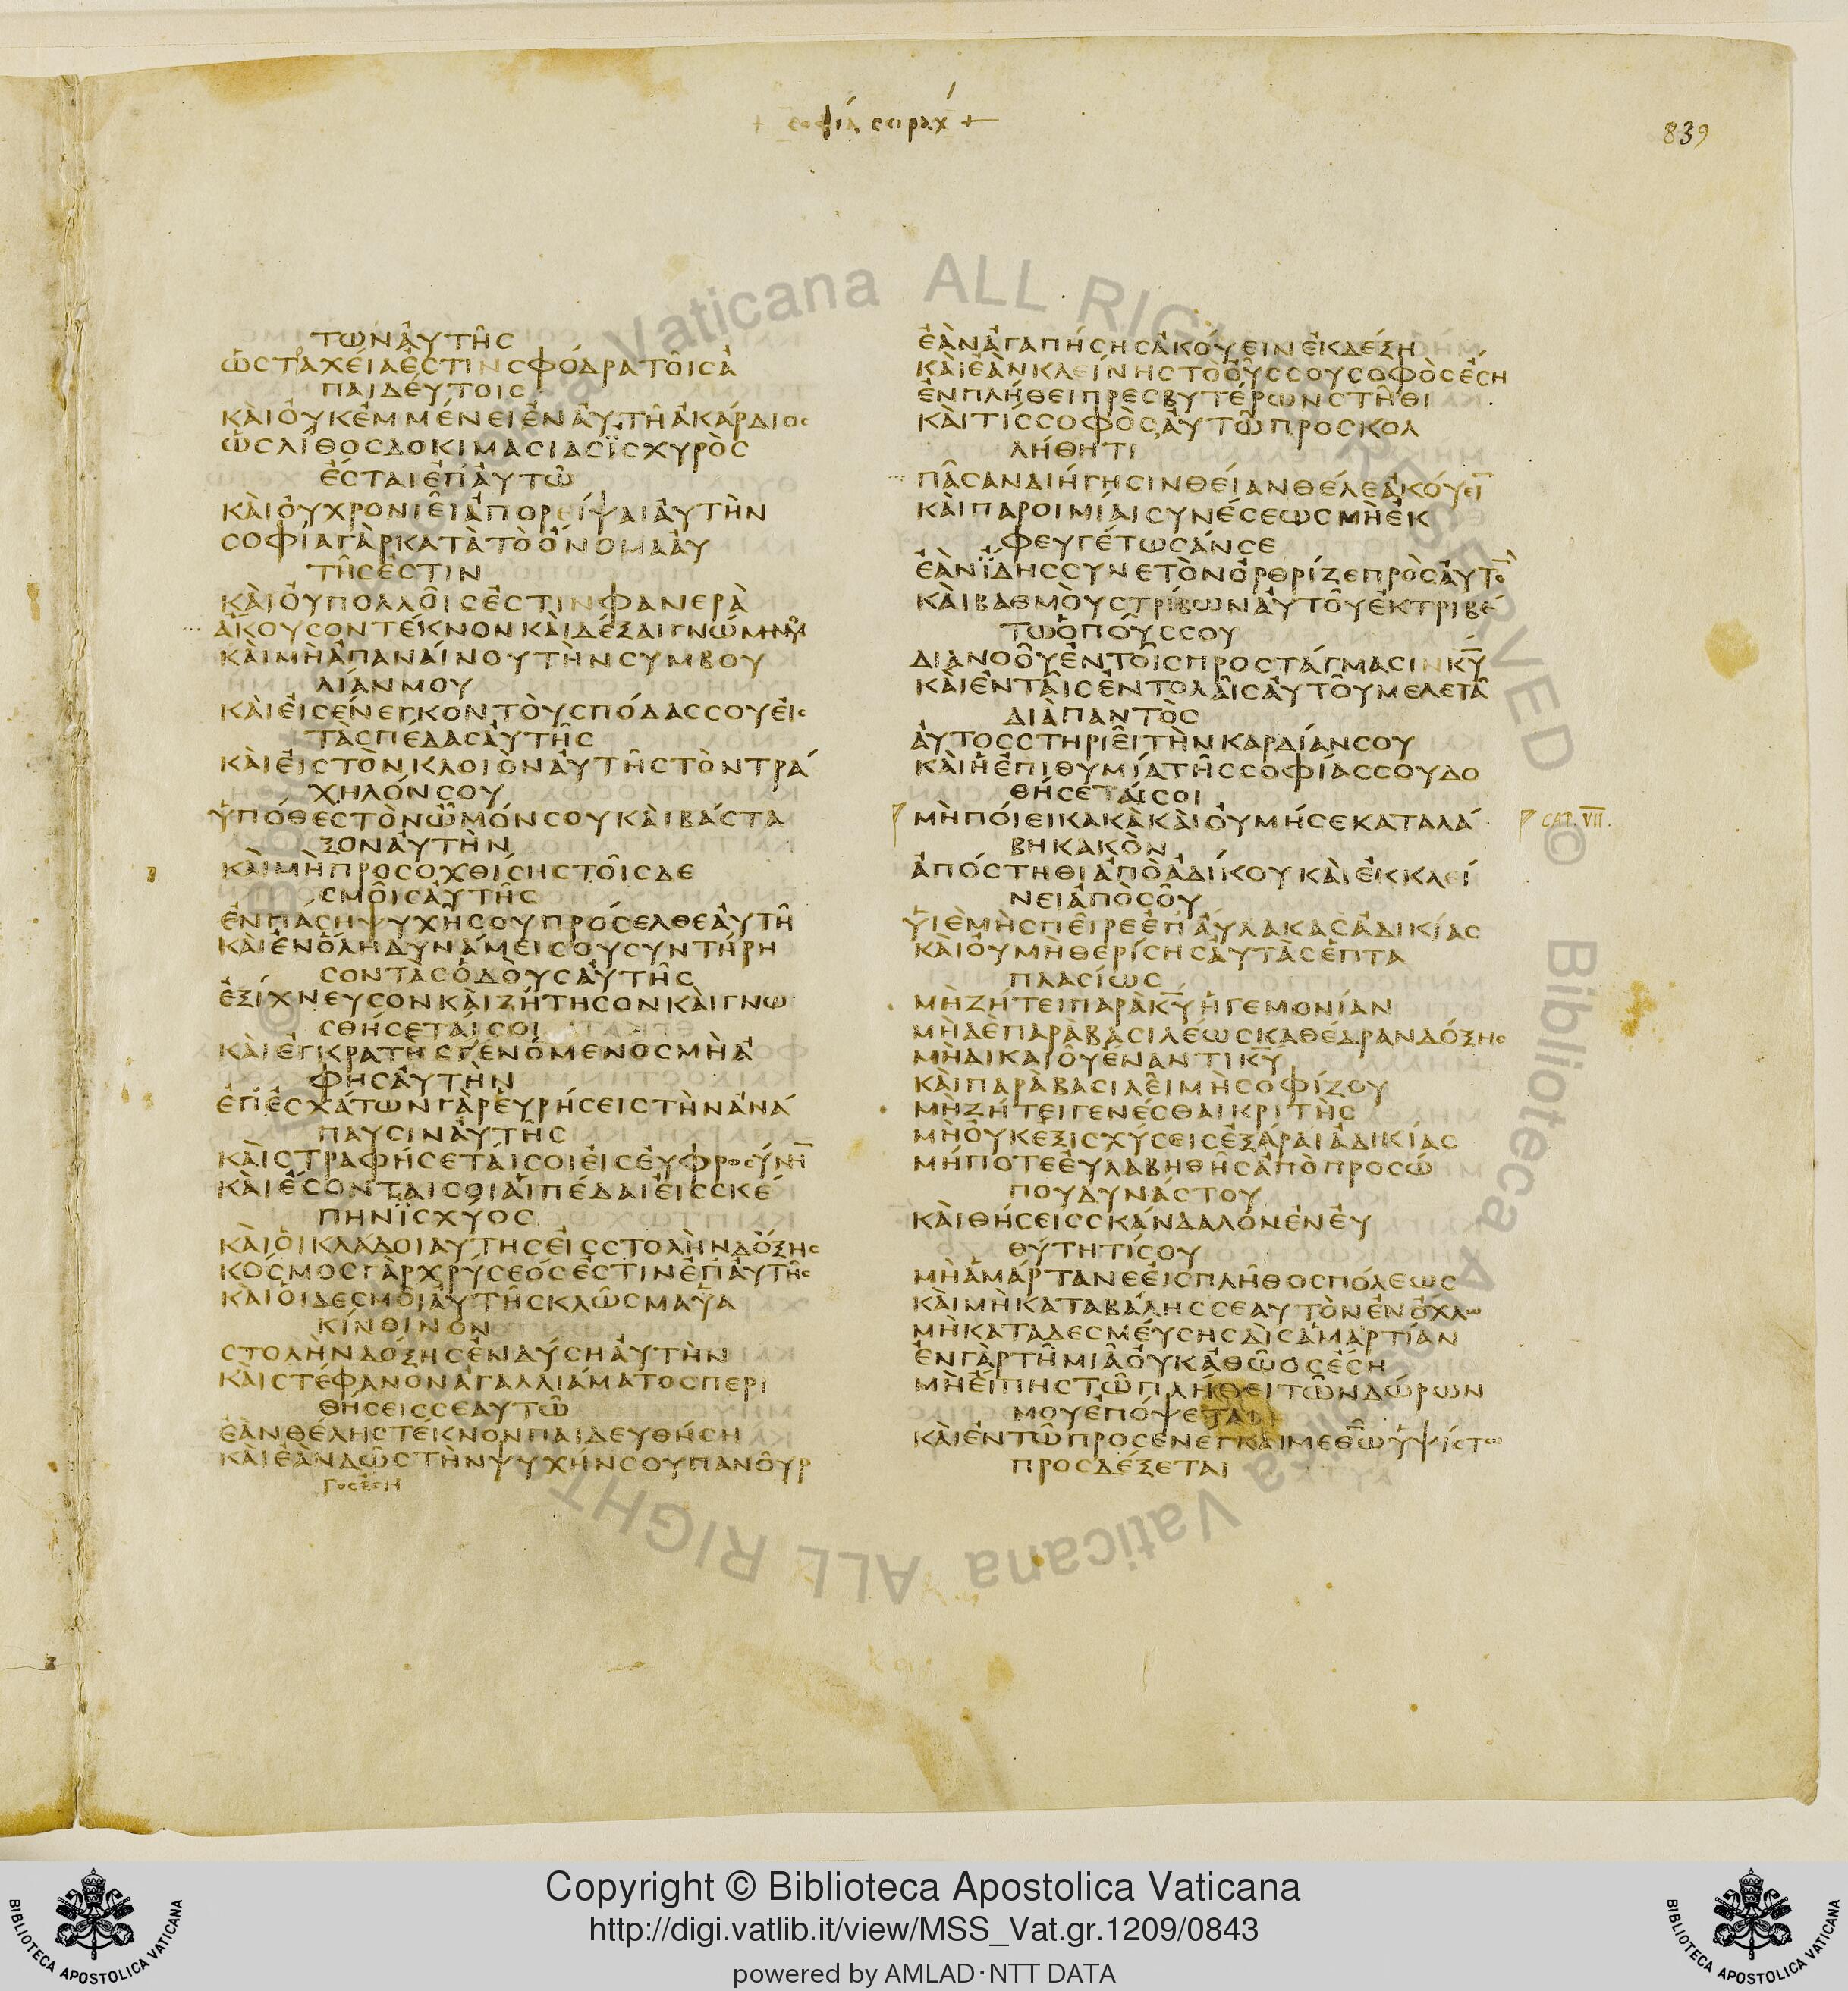 + σοφία σιραχ +
839
ΤΩΝΑΥΤΗϹ
ΩϹΤΑΧΕΙΑΕϹΤΙΝϹΦΟΔΡΑΤΟΙϹΑ
ΠΑΙΔΕΥΤΟΙϹ
ΚΑΙΟΥΚΕΜΜΕΝΕΙΕΝΑΥΤΗΑΚΑΡΔΙΟϹ
ΩϹΛΙΘΟϹΔΟΚΙΜΑϹΙΑϹΪϹΧΥΡΟϹ
ΕϹΤΑΙΕΠΑΥΤΩ
ΚΑΙΟΥΧΡΟΝΙΕΙΑΠΟΡΕΙΨΑΙΑΥΤΗΝ
ϹΟΦΙΑΓΑΡΚΑΤΑΤΟΟΝΟΜΑΑΥ
ΤΗϹΕϹΤΙΝ
ΚΑΙΟΥΠΟΛΛΟΙϹΕϹΤΙΝΦΑΝΕΡΑ
ΑΚΟΥϹΟΝΤΕΚΝΟΝΚΑΙΔΕΞΑΙΓΝΩΜΗΝΜΟΥ
ΚΑΙΜΗΑΠΑΝΑΙΝΟΥΤΗΝϹΥΜΒΟΥ
ΛΙΑΝΜΟΥ
ΚΑΙΕΙϹΕΝΕΓΚΟΝΤΟΥϹΠΟΔΑϹϹΟΥΕΙϹ
ΤΑϹΠΕΔΑϹΑΥΤΗϹ
ΚΑΙΕΙϹΤΟΝΚΛΟΙΟΝΑΥΤΗϹΤΟΝΤΡΑ
ΧΗΛΟΝϹΟΥ
ΥΠΟΘΕϹΤΟΝΩΜΟΝϹΟΥΚΑΙΒΑϹΤΑ
ΞΟΝΑΥΤΗΝ
ΚΑΙΜΗΠΡΟϹΟΧΘΙϹΗϹΤΟΙϹΔΕ
ϹΜΟΙϹΑΥΤΗϹ
ΕΝΠΑϹΗΨΥΧΗϹΟΥΠΡΟϹΕΛΘΕΑΥΤΗ
ΚΑΙΕΝΟΛΗΔΥΝΑΜΕΙϹΟΥϹΥΝΤΗΡΗ
ϹΟΝΤΑϹΟΔΟΥϹΑΥΤΗϹ
ΕΞΙΧΝΕΥϹΟΝΚΑΙΖΗΤΗϹΟΝΚΑΙΓΝΩ
ϹΘΗϹΕΤΑΙϹΟΙ
ΚΑΙΕΓΚΡΑΤΗϹΓΕΝΟΜΕΝΟϹΜΗΑ
ΦΗϹΑΥΤΗΝ
ΕΠΕϹΧΑΤΩΝΓΑΡΕΥΡΗϹΕΙϹΤΗΝΑΝΑ
ΠΑΥϹΙΝΑΥΤΗϹ
ΚΑΙϹΤΡΑΦΗϹΕΤΑΙϹΟΙΕΙϹΕΥΦΡΟϹΥΝΗ̅
ΚΑΙΕϹΟΝΤΑΙϹΟΙΑΙΠΕΔΑΙΕΙϹϹΚΕ
ΠΗΝΪϹΧΥΟϹ
ΚΑΙΟΙΚΛΑΔΟΙΑΥΤΗϹΕΙϹϹΤΟΛΗΝΔΟΞΗϹ
ΚΟϹΜΟϹΓΑΡΧΡΥϹΕΟϹΕϹΤΙΝΕΠΑΥΤΗϹ
ΚΑΙΟΙΔΕϹΜΟΙΑΥΤΗϹΚΛΩϹΜΑΥΑ
ΚΙΝΘΙΝΟΝ
ϹΤΟΛΗΝΔΟΞΗϹΕΝΔΥϹΗΑΥΤΗΝ
ΚΑΙϹΤΕΦΑΝΟΝΑΓΑΛΛΙΑΜΑΤΟϹΠΕΡΙ
ΘΗϹΕΙϹϹΕΑΥΤΩ
ΕΑΝΘΕΛΗϹΤΕΚΝΟΝΠΑΙΔΕΥΘΗϹΗ
ΚΑΙΕΑΝΔΩϹΤΗΝΨΥΧΗΝϹΟΥΠΑΝΟΥΡ
ΓΟϹΕϹΗ
ΕΑΝΑΓΑΠΗϹΗϹΑΚΟΥΕΙΝΕΚΔΕΞΗ
ΚΑΙΕΑΝΚΛΕΙΝΗϹΤΟΟΥϹϹΟΥϹΟΦΟϹΕϹΗ
ΕΝΠΛΗΘΕΙΠΡΕϹΒΥΤΕΡΩΝϹΤΗΘΙ
ΚΑΙΤΙϹϹΟΦΟϹΑΥΤΩΠΡΟϹΚΟΛ
ΛΗΘΗΤΙ
ΠΑϹΑΝΔΙΗΓΗϹΙΝΘΕΙΑΝΘΕΛΕΑΚΟΥΕΙ̅
ΚΑΙΠΑΡΟΙΜΙΑΙϹΥΝΕϹΕΩϹΜΗΕΚ
ΦΕΥΓΕΤΩϹΑΝϹΕ
ΕΑΝΪΔΗϹϹΥΝΕΤΟΝΟΡΘΡΙΖΕΠΡΟϹΑΥΤΟ̅
ΚΑΙΒΑΘΜΟΥϹΤΡΙΒΩΝΑΥΤΟΥΕΚΤΡΙΒΕ
ΤΩΟΠΟΥϹϹΟΥ
ΔΙΑΝΟΟΥΕΝΤΟΙϹΠΡΟϹΤΑΓΜΑϹΙΝΚ̅Υ̅
ΚΑΙΕΝΤΑΙϹΕΝΤΟΛΑΙϹΑΥΤΟΥΜΕΛΕΤΑ
ΔΙΑΠΑΝΤΟϹ
ΑΥΤΟϹϹΤΗΡΙΕΙΤΗΝΚΑΡΔΙΑΝϹΟΥ
ΚΑΙΗΕΠΙΘΥΜΙΑΤΗϹϹΟΦΙΑϹϹΟΥΔΟ
ΘΗϹΕΤΑΙϹΟΙ
ΜΗΠΟΙΕΙΚΑΚΑΚΑΙΟΥΜΗϹΕΚΑΤΑΛΑ
CAP. VII.
ΒΗΚΑΚΟΝ
ΑΠΟϹΤΗΘΙΑΠΟΑΔΙΚΟΥΚΑΙΕΚΚΛΕΙ
ΝΕΙΑΠΟϹΟΥ
ΥΙΕΜΗϹΠΕΙΡΕΕΠΑΥΛΑΚΑϹΑΔΙΚΙΑϹ
ΚΑΙΟΥΜΗΘΕΡΙϹΗϹΑΥΤΑϹΕΠΤΑ
ΠΛΑϹΙΩϹ
ΜΗΖΗΤΕΙΠΑΡΑΚ̅Υ̅ΗΓΕΜΟΝΙΑΝ
ΜΗΔΕΠΑΡΑΒΑϹΙΛΕΩϹΚΑΘΕΔΡΑΝΔΟΞΗϹ
ΜΗΔΙΚΑΙΟΥΕΝΑΝΤΙΚ̅Υ̅
ΚΑΙΠΑΡΑΒΑϹΙΛΕΙΜΗϹΟΦΙΖΟΥ
ΜΗΖΗΤΕΙΓΕΝΕϹΘΑΙΚΡΙΤΗϹ
ΜΗΟΥΚΕΞΙϹΧΥϹΕΙϹΕΞΑΡΑΙΑΔΙΚΙΑϹ
ΜΗΠΟΤΕΕΥΛΑΒΗΘΗϹΑΠΟΠΡΟϹΩ
ΠΟΥΔΥΝΑϹΤΟΥ
ΚΑΙΘΗϹΕΙϹϹΚΑΝΔΑΛΟΝΕΝΕΥ
ΘΥΤΗΤΙϹΟΥ
ΜΗΑΜΑΡΤΑΝΕΕΙϹΠΛΗΘΟϹΠΟΛΕΩϹ
ΚΑΙΜΗΚΑΤΑΒΑΛΗϹϹΕΑΥΤΟΝΕΝΟΧΛΩ
ΜΗΚΑΤΑΔΕϹΜΕΥϹΗϹΔΙϹΑΜΑΡΤΙΑΝ
ΕΝΓΑΡΤΗΜΙΑΟΥΚΑΘΩΟϹΕϹΗ
ΜΗΕΙΠΗϹΤΩΠΛΗΘΕΙΤΩΝΔΩΡΩΝ
ΜΟΥΕΠΟΨΕΤΑΙ
ΚΑΙΕΝΤΩΠΡΟϹΕΝΕΓΚΑΙΜΕΘ̅Ω̅ΥΨΙϹΤΩ
ΠΡΟϹΔΕΞΕΤΑΙ
Copyright © Biblioteca Apostolica Vaticana
http://digi.vatlib.it/view/MSS_Vat.gr.1209/0843
powered by AMLAD·NTT DATA
BIBLIOTECA APOSTOLICA VATICANA
BIBLIOTECA APOSTOLICA VATICANA